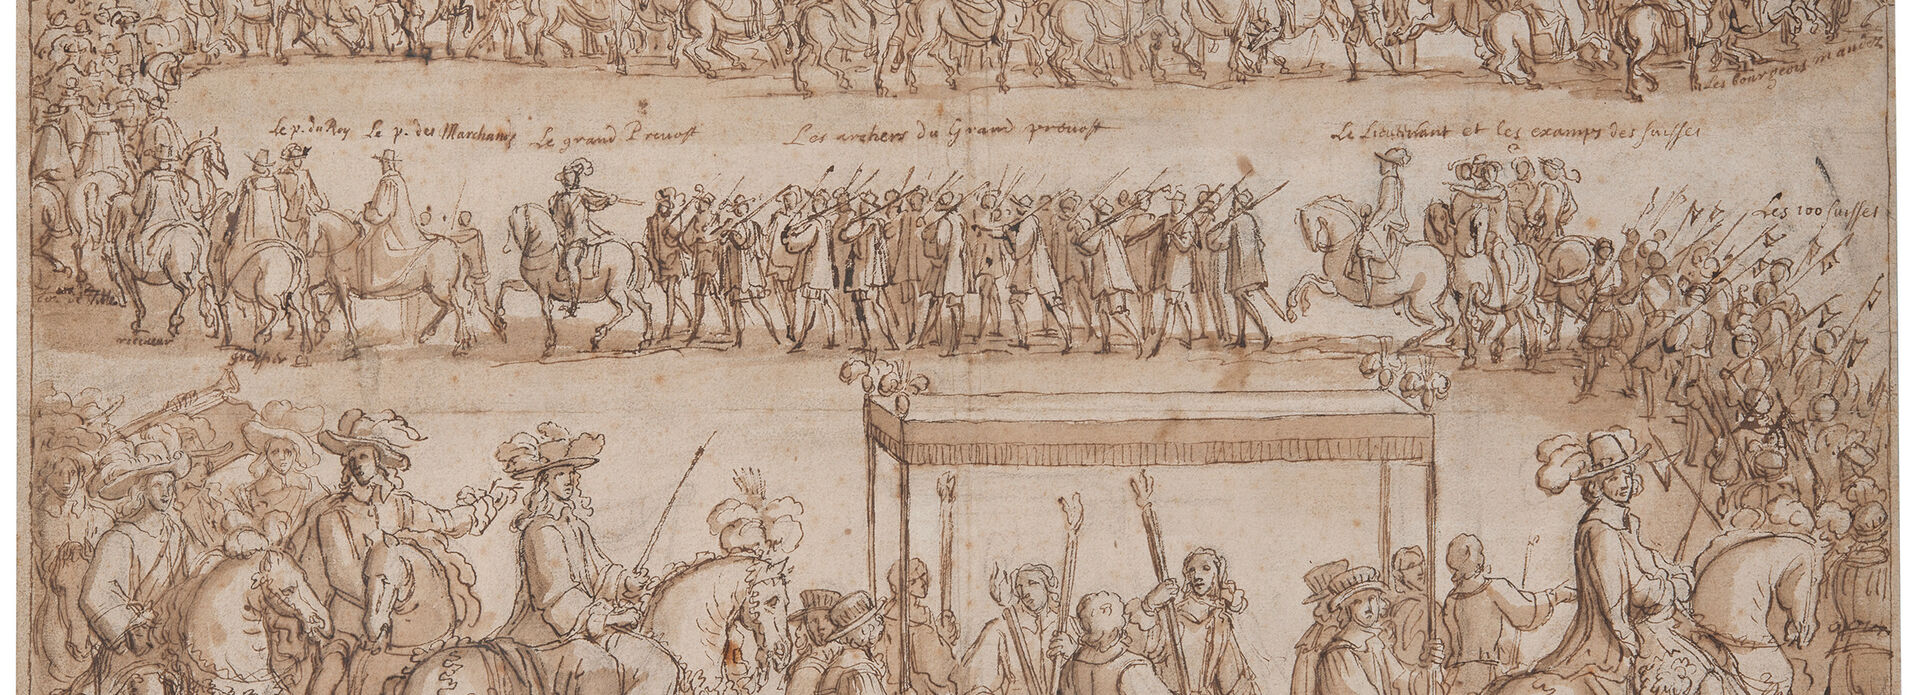 Les bourgeois mandez
Le p. du Roy Le p. des Marchans Le grand Prevost Les archers du Grand prevost Le Lieutenant et les examps des suisses
Les 100 suisses
Cor de Ville
receveur
greffier